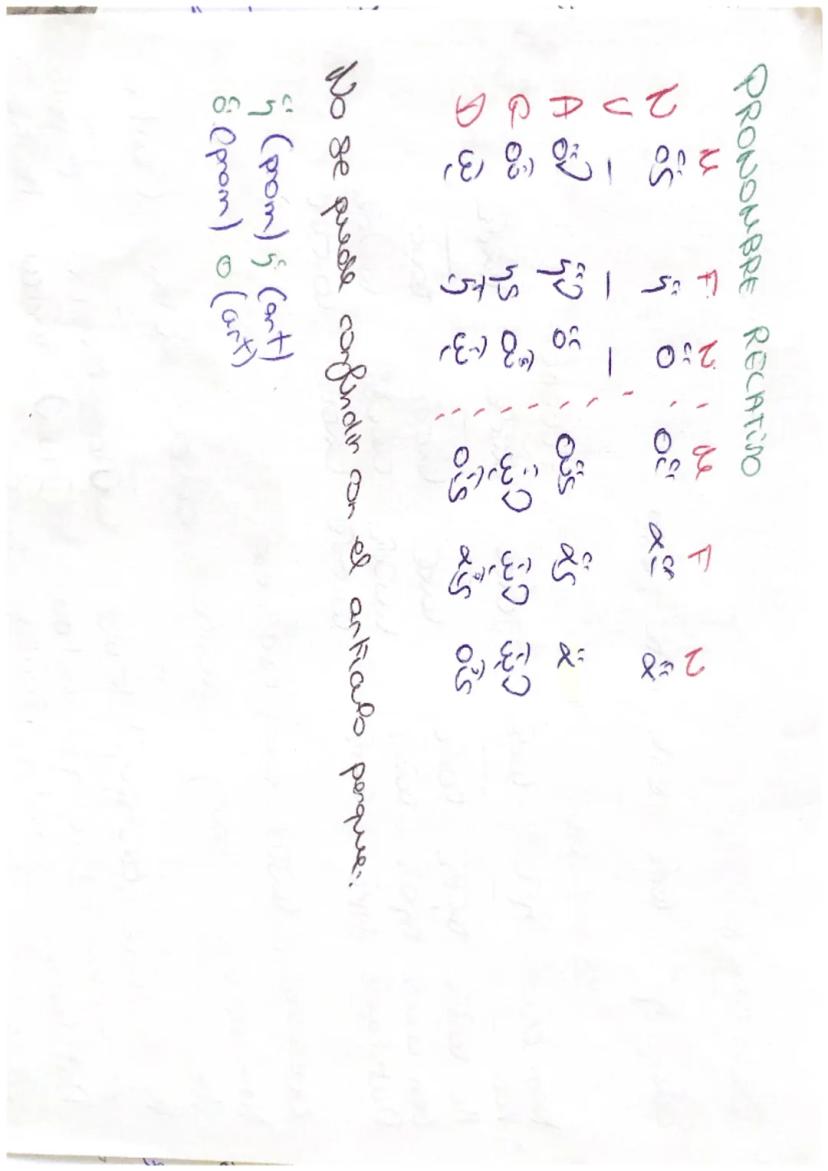 PRONOMBRE RELATIVO
M F N M F N
N ὅς ἥ ὅ οἵ αἵ ἅ
V – – –
A ὅν ἥν ὅ οὕς ἅς ἅ
G οὗ ἧς οὗ ὧν ὧν ὧν
D ᾧ ᾗ ᾧ οἷς αἷς οἷς
No se puede confundir con el artículo porque:
ἥ (pron) ἡ (art)
ὅ (pron) ὁ (art)